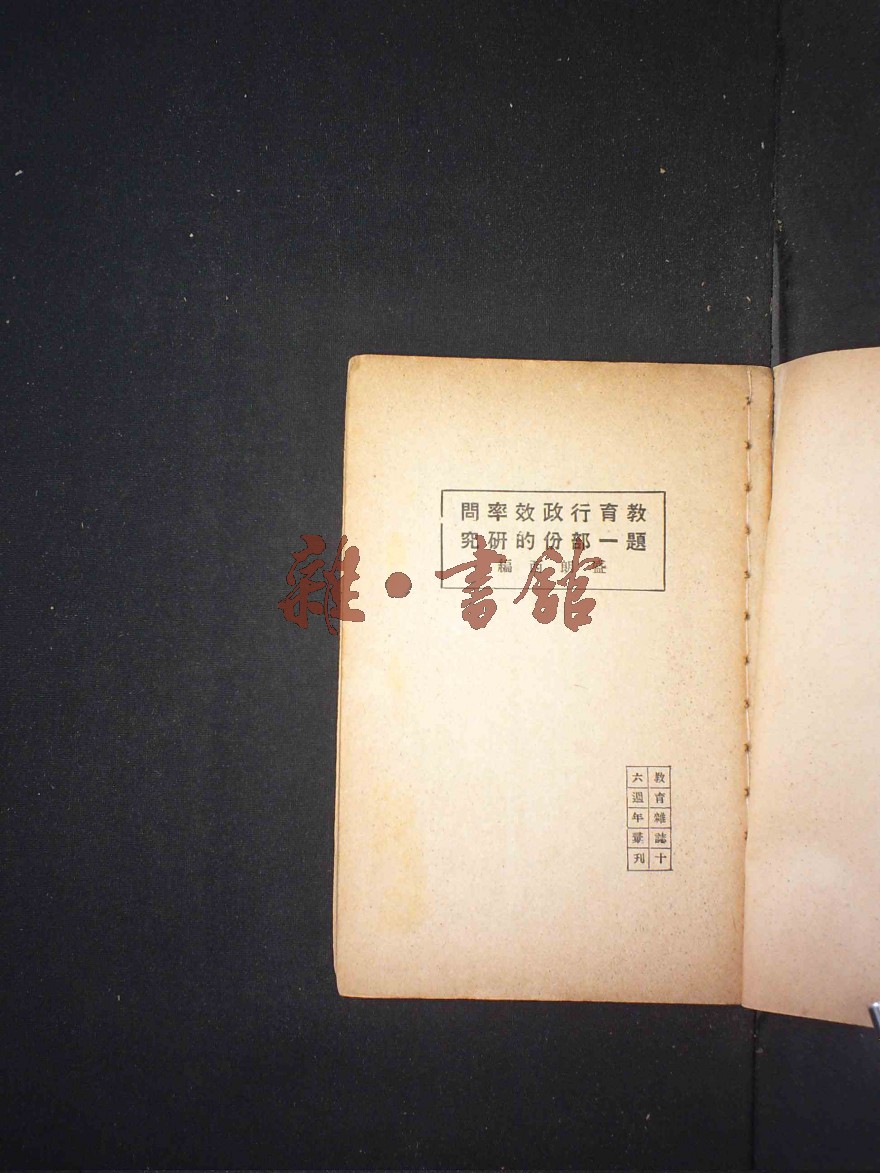 教育行政效率問
題一部份的研究
盛朗西編
雜·書館
教育雜誌十
六週年彙刊